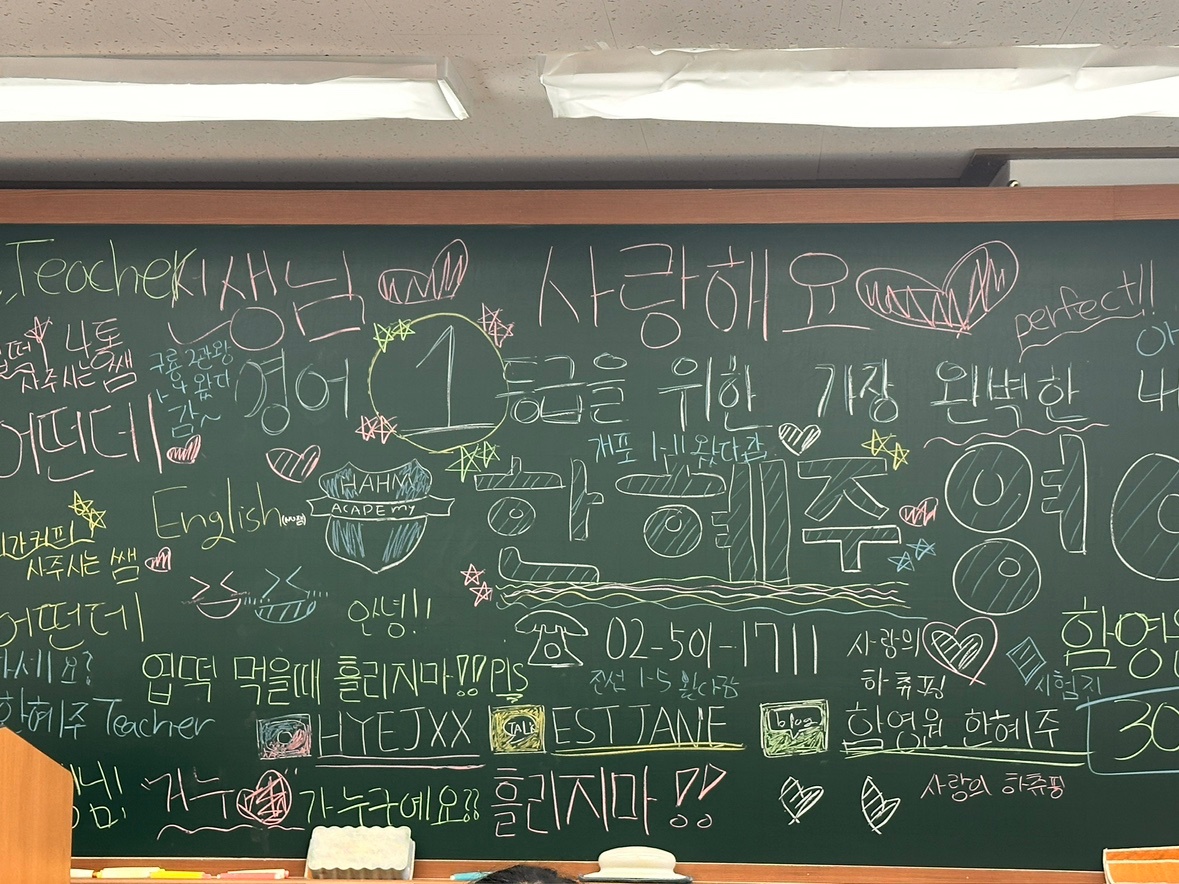 Teacher
쌤님 사랑해요
perfect!!
4통
사주시는 쌤
구룡 2관왕
영어 1등급을 위한 가장 완벽한
어떤데
감~
개포 1-11 왔다감
HAHN
ACADEMY
한혜주 영
English
사주시는 쌤
어떤데
안녕!!
02-501-1711
사랑의
하츄핑
시험지
엽떡 먹을때 흘리지마!! Pls
진선 1-5 왔다감
한혜주 Teacher
HYEJXX
TALK
EST JANE
blog
함영원 한혜주
30
"거누
가 누구예요??
흘리지마!!
사랑의 하츄핑